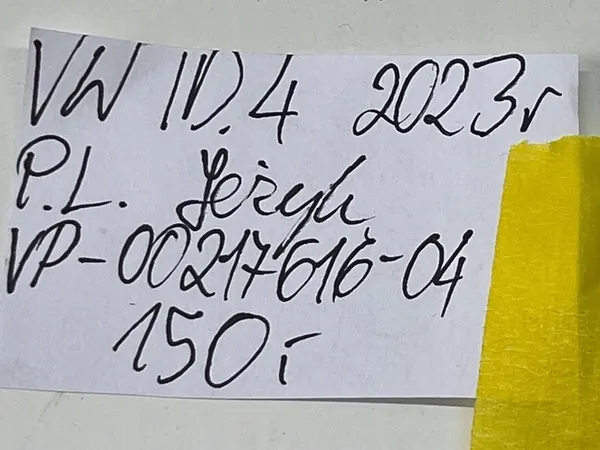 VW ID.4 2023r
P.L. Jeżyk
VP-00217616-04
150,-